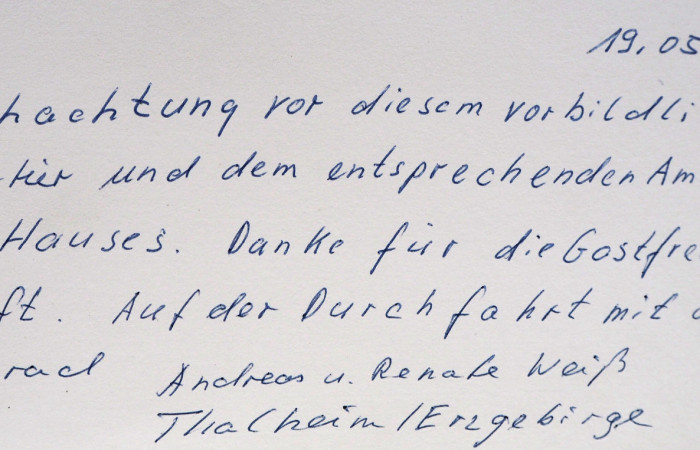 19.05
hachtung vor diesem vorbildli
tier und dem entsprechenden Am
Hauses. Danke für die Gastfre
ft. Auf der Durchfahrt mit d
rad Andreas u. Renate Weiß
Thalheim/Erzgebirge